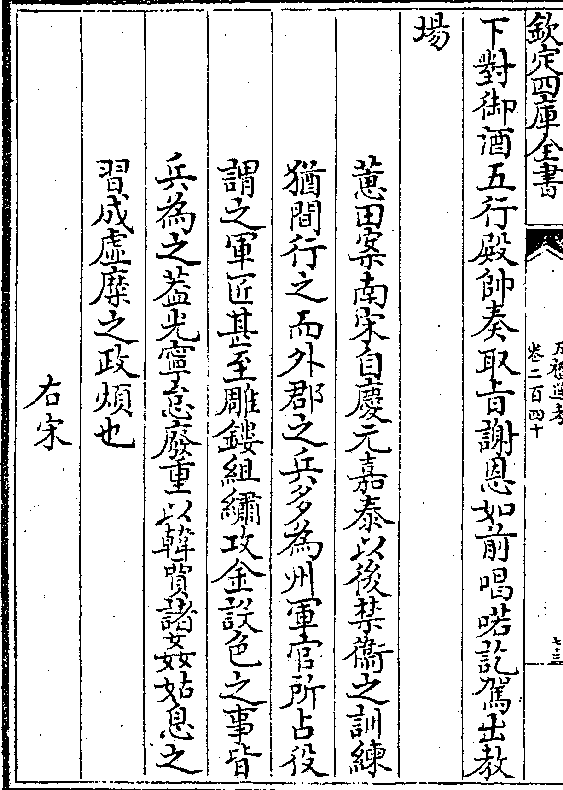 欽定四庫全書
五禮通考
卷二百四十
下對御酒五行殿帥奏取旨謝恩如前唱喏訖駕出教
場
蕙田案南宋自慶元嘉泰以後禁衞之訓練
猶間行之而外郡之兵多為州軍官所占役
謂之軍匠甚至雕鏤組繡攻金設色之事皆
兵為之葢光寧怠廢重以韓賈諸姦姑息之
習成虛糜之政煩也
右宋